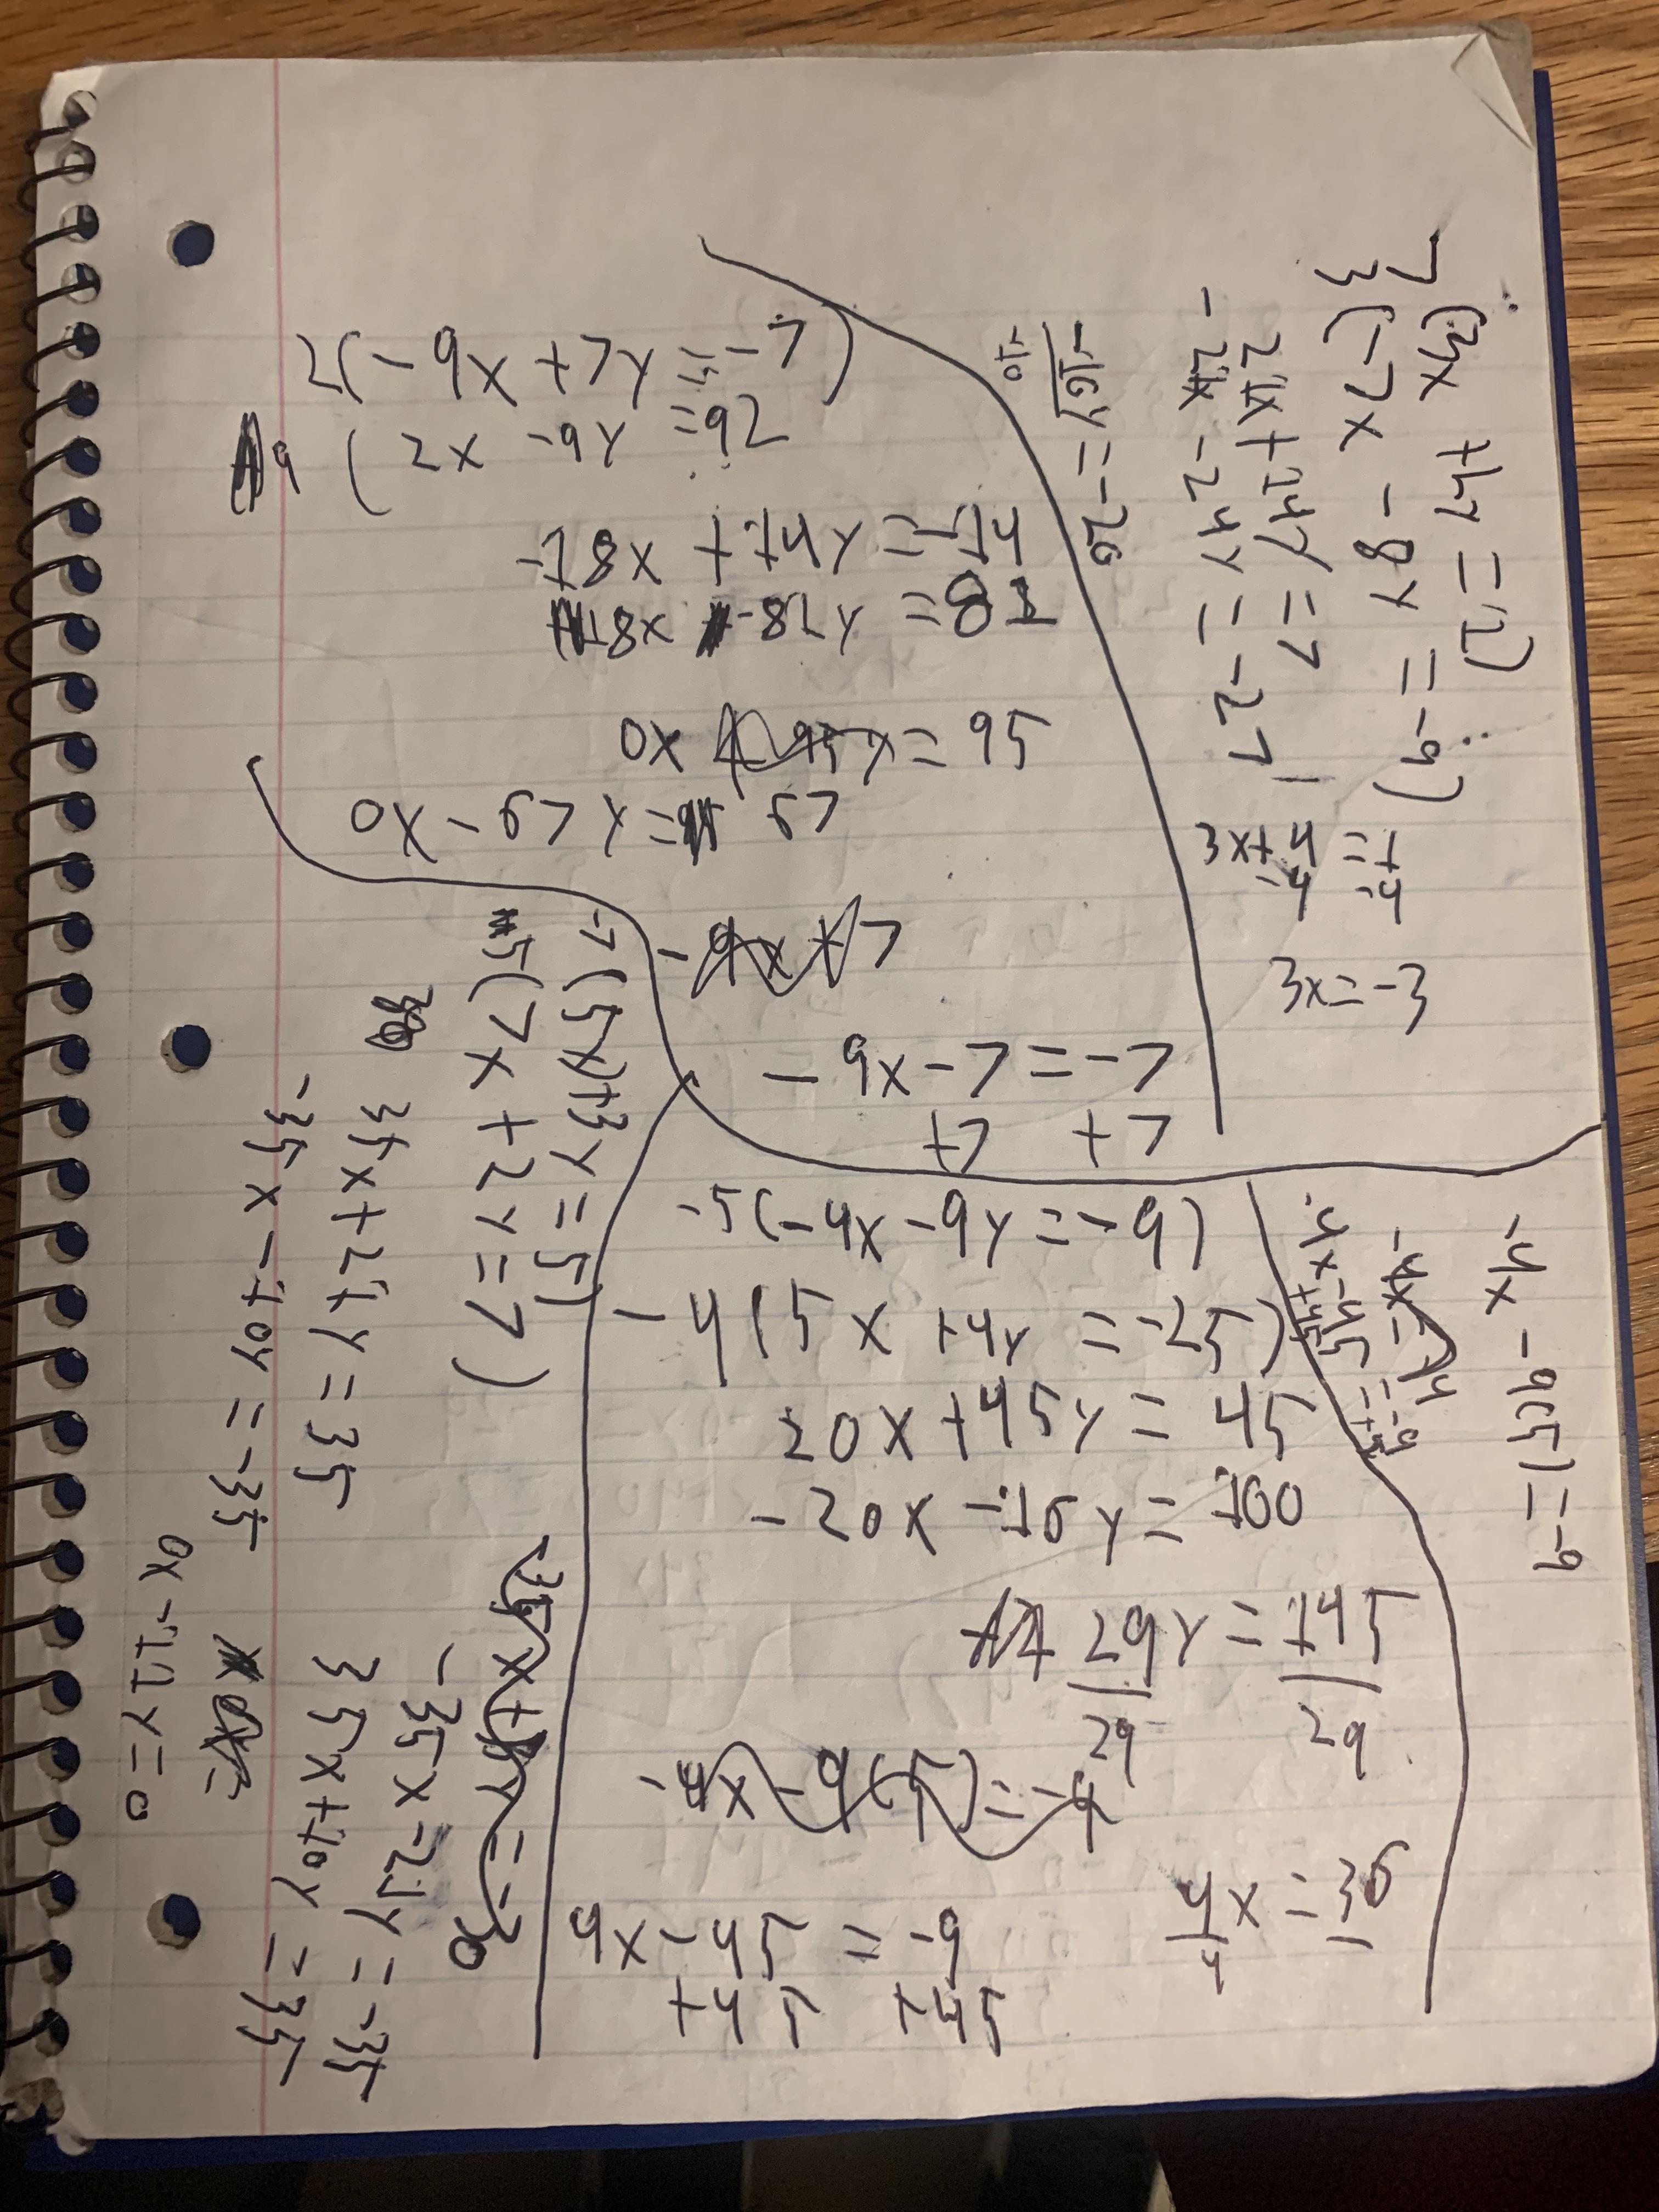 2(-9x+7y=-7)
9(2x-9y=92
-18x+14y=-14
18x-81y=81
0x
=95
0x-67y=67
-9x+7
-9x-7=-7
+7 +7
7(3x+4y=1)
3(-7x-8y=-9)
21x+14y=7
-21x-24y=-27
=-20
3x+4=1
-4 -4
3x=-3
-7(5x+3y=5)
5(7x+2y=7)
35x+21y=35
-35x-10y=-35
-35x-21y=-35
35x+10y=35
0x-11y=0
-5(-4x-9y=-9)
-4(5x+4y=-25)
20x+45y=45
-20x-16y=100
29y=145
29 29
4x-45=-9
+45 +45
4x=36
4
-4x-9(5)=-9
-4x-45=-9
+45 +45